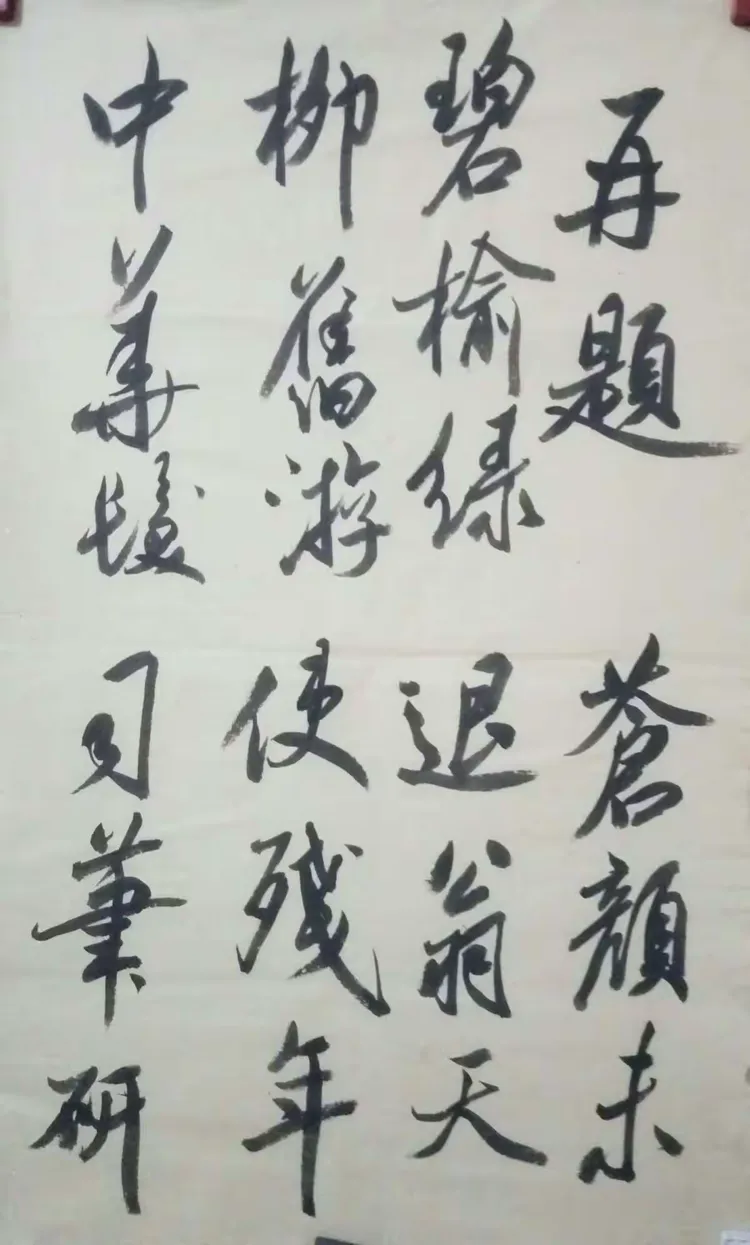 再題
碧榆綠
柳舊游
中華髮
蒼顏未
退翁天
使殘年
司筆研